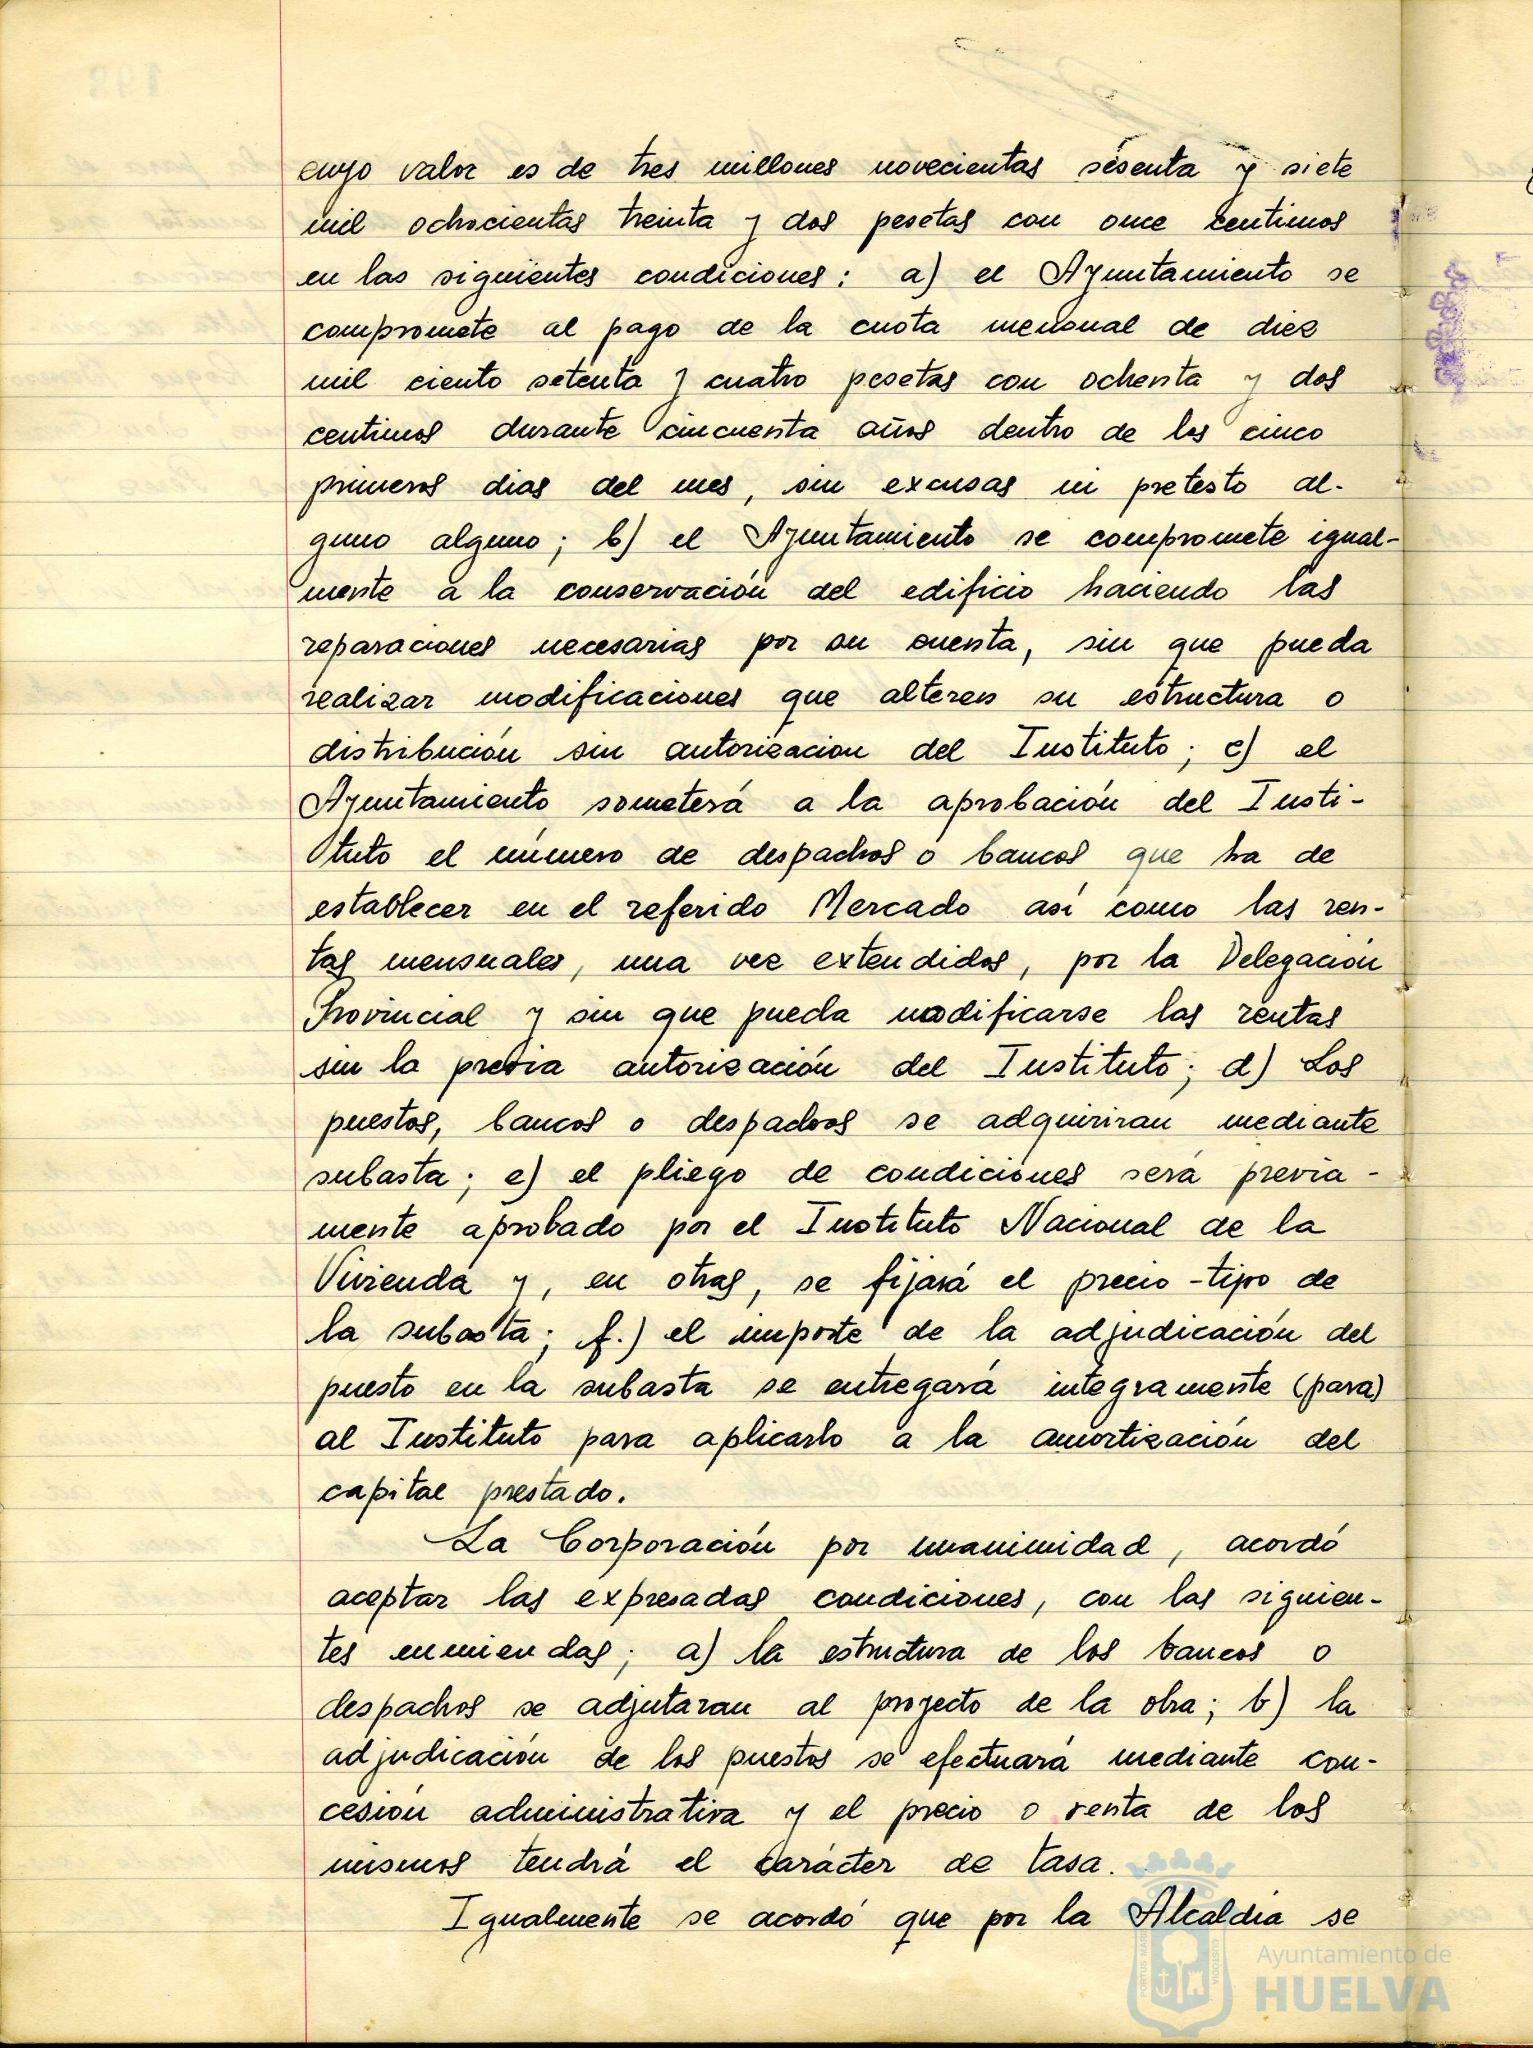 cuyo valor es de tres millones novecientas sesenta y siete
mil ochocientas treinta y dos pesetas con once centimos
en las siguientes condiciones: a) el Ayuntamiento se
compromete al pago de la cuota mensual de diez
mil ciento setenta y cuatro pesetas con ochenta y dos
centimos durante cincuenta años dentro de los cinco
primeros dias del mes, sin excusas ni pretesto al-
guno alguno; b) el Ayuntamiento se compromete igual-
mente a la conservación del edificio haciendo las
reparaciones necesarias por su cuenta, sin que pueda
realizar modificaciones que alteren su estructura o
distribución sin autorizacion del Instituto; c) el
Ayuntamiento someterá a la aprobación del Insti-
tuto el número de despachos o bancos que ha de
establecer en el referido Mercado así como las ren-
tas mensuales, una vez extendidos, por la Delegación
Provincial y sin que pueda modificarse las rentas
sin la previa autorización del Instituto; d) Los
puestos, bancos o despachos se adquiriran mediante
subasta; e) el pliego de condiciones será previa-
mente aprobado por el Instituto Nacional de la
Vivienda y, en otras, se fijará el precio-tipo de
la subasta; f.) el importe de la adjudicación del
puesto en la subasta se entregará integramente (para)
al Instituto para aplicarlo a la amortización del
capital prestado.
La Corporación por unanimidad, acordó
aceptar las expresadas condiciones, con las siguien-
tes enmiendas; a) la estructura de los bancos o
despachos se adjutaran al proyecto de la obra; b) la
adjudicación de los puestos se efectuará mediante con-
cesión administrativa y el precio o renta de los
mismos tendrá el carácter de tasa.
Igualmente se acordó que por la Alcaldía se
Ayuntamiento de
HUELVA